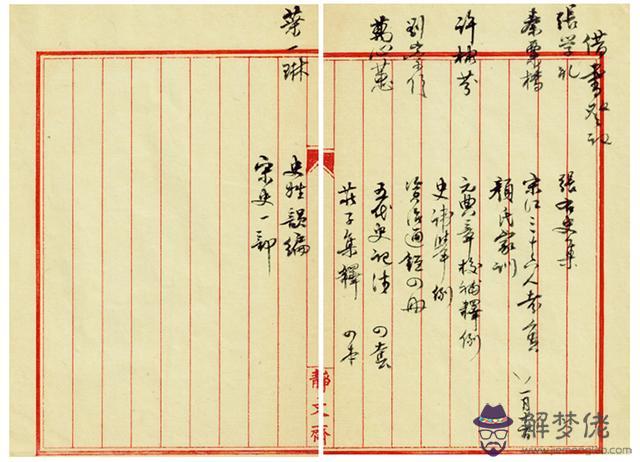 借書登記
張学礼 張右史集
秦翠橋 宋江三十六人考實 八一月廿
顏氏家訓
許梅芬 元典章校補釋例
史諱舉例
劉 資治通鑑四冊
萬心蕙 五代史記注 四套
莊子集釋 四本
葉一琳 史姓韻編
宋史一部
靜文齋
解梦佬